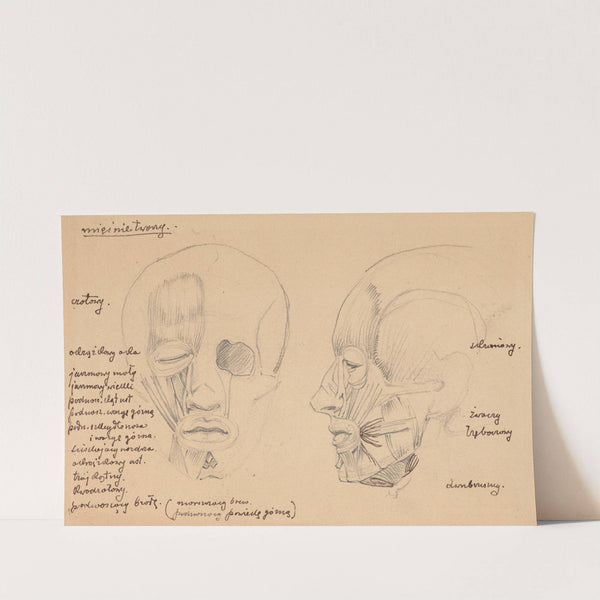 mięśnie twarzy.
czołowy.
okrężkowy oka
jarzmowy mały
jarzmowy wielki
podnosi. kąt ust
podnosz. wargę górną
podn. skrzydło nosa
i wargę górną.
ściskający nozdrza
okrężkowy ust.
trójkątny.
kwadratowy.
podnoszący brodę.
(marszczący brew.
podnoszący powiekę górną)
skroniowy.
żwaczy
trębaczowy